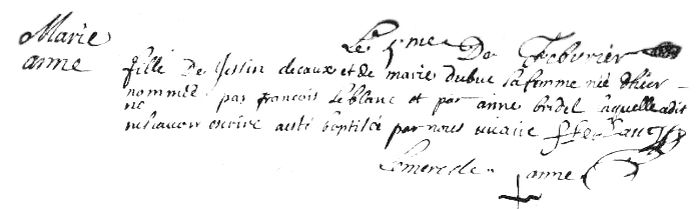 Marie
anne
Le 5me De febvrier
fille De Justin decaux et de marie dubuc sa femme née d'hier
nommée par françois leblanc et par anne bridel laquelle a dit
ne scavoir escrire a esté baptisée par nous vicaire
merc de anne